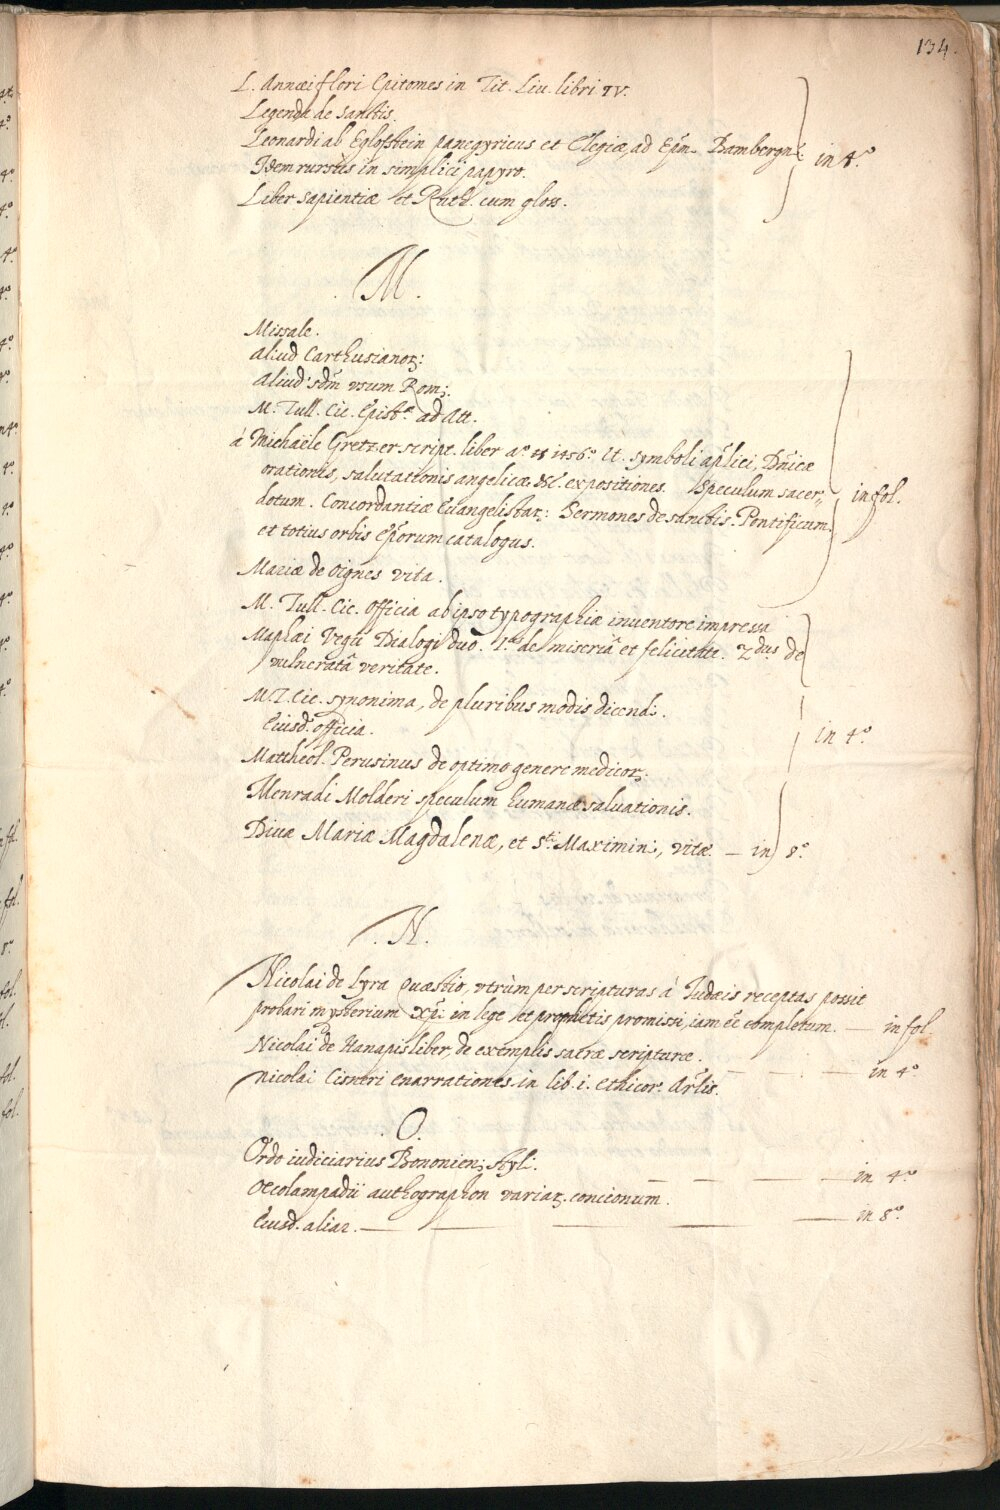 134.
L. Annæi flori Epitomes in Tit. Liu. libri IV.
Legenda de sanctis.
Leonardi ab Eglofstein panegyricus et Elegiæ, ad Ep̃m. Bambergn̄:
Idem rursus in simplici papyro.
in 4º
Liber sapientiæ et Ruth. cum gloss.
. M .
Missale.
Aliud Carthusianoꝝ:
Aliud sdm̃ vsum Rom:
M. Tull. Cic. Epistæ ad Att.
à Michaële Gretzer script. liber aº 1456º Vt. symboli ap̃lici, Dn̄icæ
orationis, salutationis angelicæ &c. expositiones. Speculum sacer„
dotum. Concordantiæ Euangelistaꝝ: Sermones de sanctis. Pontificum.
in fol.
et totius orbis Ep̃orum catalogus.
Mariæ de Oignes vita.
M. Tull. Cic. Officia ab ipso typographiæ inuentore impressa
Maphæi Vegij Dialogi duo. 1us de miseriâ et felicitate. 2dus de
vulneratâ veritate.
M. T. Cic. synonima, de pluribus modis dicendi.
Eiusd. officia.
in 4º
Mattheol. Perusinus de optimo genere medicoꝝ.
Menradi Molderi speculum humanæ saluationis.
Diuæ Mariæ Magdalenæ, et Sti Maximini, vitæ. — in 8º
. N .
Nicolai de Lyra quæstio, vtrùm per scripturas à Iudæis receptas possit
probari mysterium Xp̃i in lege et prophetis promissi, iam ẽe completum. — in fol.
Nicolai de Hanapis liber de exemplis sacræ scripturæ.
Nicolai Cisneri enarrationes in lib. i. Ethicor. Ar̃lis. — in 4º
. O .
Ordo iudiciarius Bononien: styli.
Oecolampadij authographon variaꝝ concionum. — in 4º
Eiusd. aliaꝝ. — in 8º.